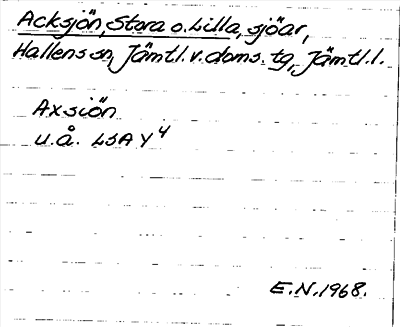 Acksjön, Stora o. Lilla, sjöar,
Hallens sn, Jämtl. v. doms. tg, Jämtl. l.
Axsiön
u.å. LSA Y4
E.N. 1968.